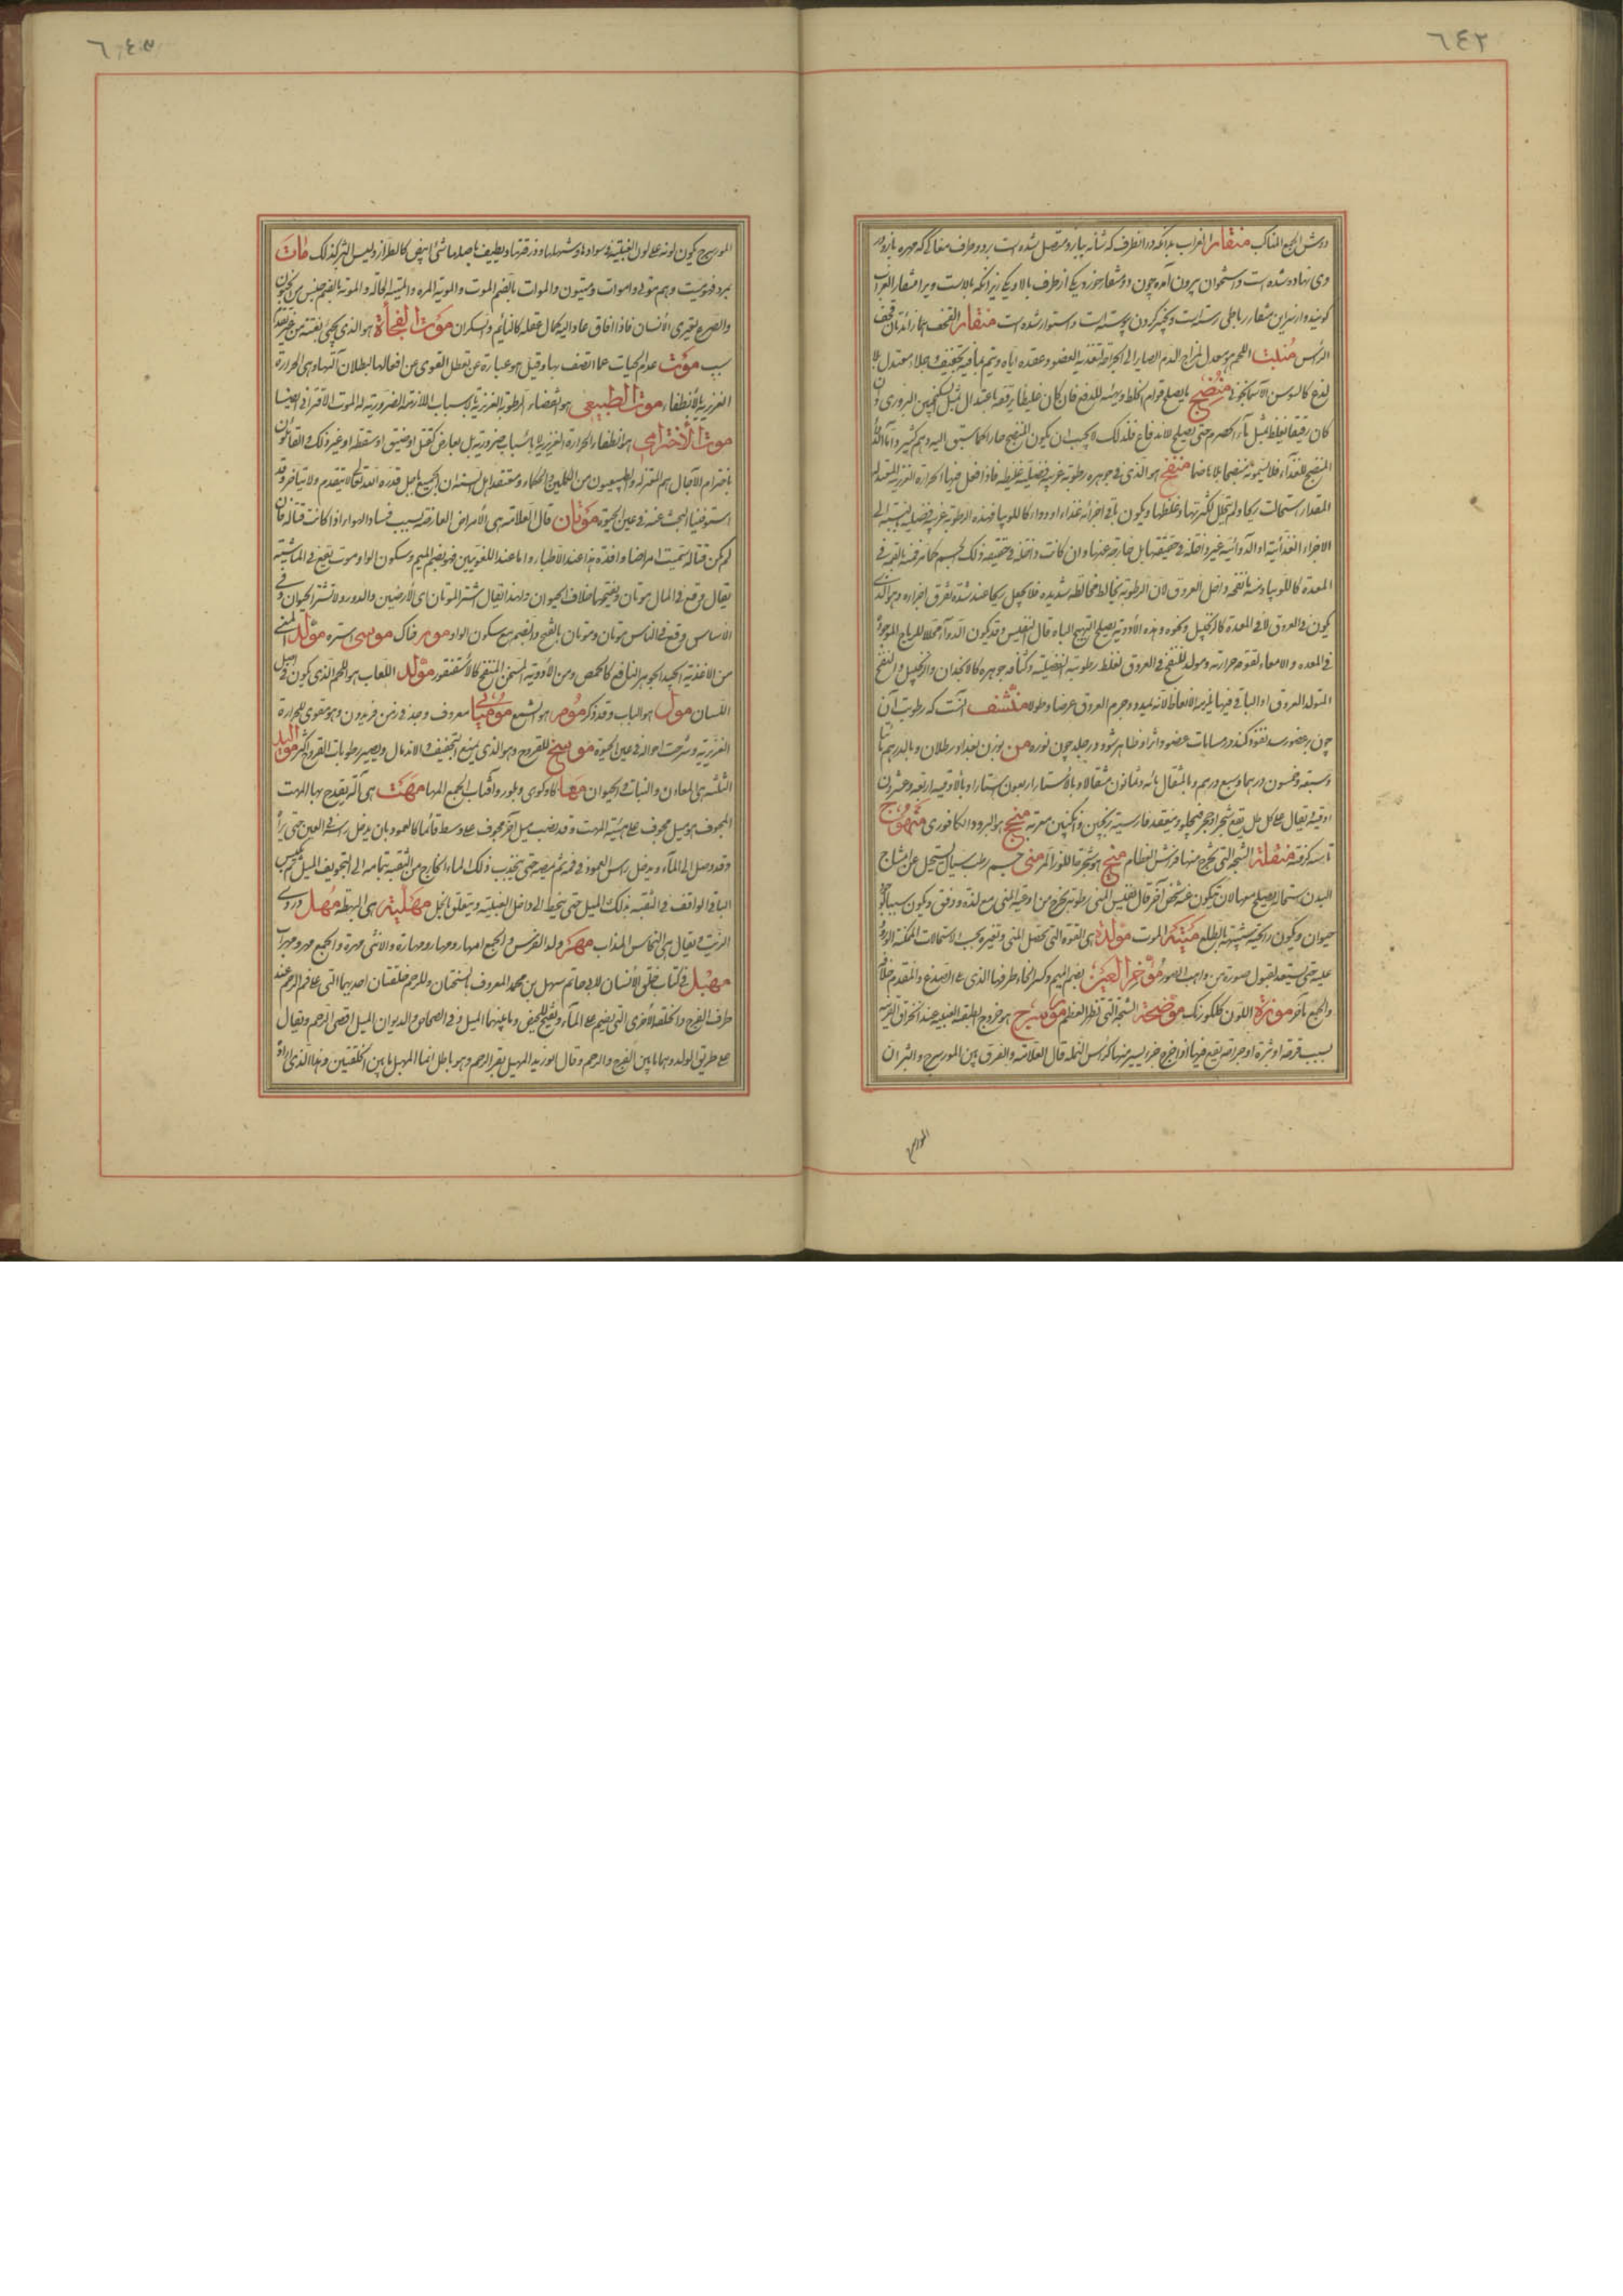 ٦٤٢
دوش الجمع المناكب منقار الغراب بدانكه در انطرف كه شانه ببازو متصل شده است بر دو طرف مغاكى كه مهره بازو در
وى نهاده شده است و استخوان بيرون آمده چون دو منقار خرد يكى از طرف بالا و يكى زير انكه بالاست ويرا منقار الغراب
كويند و از سر اين منقار رباطى رسته است و بچنبر كردن پيوسته است و استوار شده است منقار القحف هما زائدتان قحف
الرأس منبت اللحم هو معدل لمزاج الدم الصاير الى الجراحة لتغذية العضو و عقده اياه و يتم بما فيه تجفيف و جلاء معتدل بلا
لذع كالسوسن الآسمانجونى منضج ما يصلح قوام الخلط و يهيئه للدفع فان كان غليظا يرققه باعتدال مثل السكنجبين البزورى وان
كان رقيقا يغلظ مثل ماء الحصرم حتى يصلح للاندفاع فلذلك لا يجب ان يكون المنضج حارا كما سبق اليه وهم كثير و اما الدواء
المنضج للغذاء فلا يسمونه منضجا بل هاضما منفخ هو الذى فى جوهره رطوبة غريبة فضلية غليظة فاذا فعل فيها الحرارة الغريزية المتولد
المقدار استحالت ريحا و لم يتحلل لكثرتها و غلظها و يكون باقى اجزائه غذاء او دواء كاللوبيا فهذه الرطوبة غريبة فضلية بالنسبة الى
الاجزاء الغذائية او الدوائية غير داخلة فى حقيقتها بل خارجة عنها و ان كانت داخلة فى حقيقة ذلك الجسم كما مر فمنه ما نفخه فى
المعدة كاللوبيا و منه ما نفخه داخل العروق لان الرطوبة يخالط مخالطة شديدة فلا يحيل ريحا عند شدة تفرق اجزاءه و هو الذى
يكون فى العروق لا فى المعدة كالزنجبيل و نحوه و هذه الأدوية يصلح لتهييج الباه قال النفيس و قد يكون الدواء محللا للرياح الموجودة
فى المعدة و الامعاء لقوة حرارته و مولد للنفخ فى العروق لغلظ رطوبته الفضلية و كثافة جوهره كالانجدان و الزنجبيل و النفخ
المتولد العروق او الباقى فيها يلزمه الانعاظ لانه يمدد و جرم العروق عرضا و طولا منشف آنست كه رطوبت آن
چون بعضو رسد نفوذ كند در مسامات عضو و اثر او ظاهر شود در جلد چون نوره من بوزن بغداد رطلان و بالدرهم مأتا
و سبعة و خمسون درهما و سبع درهم و بالمثقال مائة و ثمانون مثقالا و بالأستار اربعون استارا و بالأوقية اربعة و عشرون
اوقية يقال على كل طل يقع شجر او حجر فيحلو و ينعقد فارسيته ترنجبين و انكبين معربه منج هو البرود الكافورى منهوج
تابسه كرفته منقلة الشجة التى يخرج منها فرش العظام منج هو شجرة اللوز المر منى جسم رطب سيال يستحيل عن امشاج
البدن استحالة يصلح معها لان يتكون عنه شخص آخر قال النفيس المنى رطوبة يخرج من اوعية المنى مع لذة و دفق و يكون سببا لتكون
حيوان و يكون رائحته شبيهة بالطلع منية الموت مولدة هى القوة التى تحصل المنى و تغيره بحسب الاستحالات الممكنة الورود
عليه حتى يستعد لقبول صورة من واهب الصور مؤخر العين بضم الميم و كسر الخاء طرفها الذى يلى الصدغ و المقدم خلافه
و الجمع مآخر موزة اللون كلكونك موضحة الشجة التى تظهر العظم مورسرج هو خروج الطبقة العنبية عند انخراق القرنية
بسبب قرحة او بثرة او جراحة يقع فيها او خرج جزء يسير منها كرأس النملة قال العلامة و الفرق بين المورسرج و البثر ان
المورسرج
٦٤٣
المورسرج يكون لونه على لون العنبية فى سوادها و شهلتها و زرقتها و يطيف باصلها شئ ابيض كالطراز و ليس البثر كذلك مات
يموت فهو ميت و هم موتى و اموات و ميتون و الموات بالضم الموت و الموتة المرة و الميتة الحالة و الموتة بالضم جنس من الجنون
و الصرع يعترى الأنسان فاذا افاق عاد اليه كمال عقله كالنائم و السكران موت الفجأة هو الذى يجئ بغتة من غير تقدم
سبب موت عدم الحيات عما اتصف بها و قيل هو عبارة عن تعطل القوى عن افعالها لبطلان آلتها و هى الحرارة
الغريزية بالأنطفاء موت الطبيعى هو انقضاء الرطوبة الغريزية بالاسباب اللازمة الضرورية له الموت الاقترانى ايضا
موت الأخترامى هو انطفاء الحرارة الغريزية لا باسباب ضرورية بل بعارض كقتل او ضيق او سقطة او غير ذلك و القائلون
باخترام الآجال هم المعتزلة و الطبيعيون من المتكلمين و الحكماء و معتقد اهل السنة ان الجميع باجل قدره الله تعالى لا يتقدم و لا يتأخر و قد
استوفينا البحث عنه فى عين الحيوة موتان قال العلامة هى الأمراض العارضة بسبب فساد الهواء اذا كانت قتالة فان
لم تكن قتالة سميت امراضا وافدة هذا عند الأطباء و اما عند اللغويين فهو بضم الميم و سكون الواو موت يقع فى الماشية
يقال وقع فى المال موتان و بفتحها خلاف الحيوان و لهذا يقال اشتر الموتان اى الأرضين و الدور و لا تشتر الحيوان و فى
الاساس وقع فى الناس موتان و موتان بالفتح و الضم مع سكون الواو مور خاك موسى استره مولد المنى
من الأغذية الجيد الجوهر النافخ كالحمص و من الأدوية المسخن المنفخ كالأسقنقور مولد اللعاب هو اللحم الذى يكون فى اصل
اللسان مول هو الباب و قد ذكر موم هو الشمع موميائى معروف وجد فى زمن فريدون و هو مقوى للحرارة
الغريزية و شرحت احواله فى عين الحيوة موسخ للقروح و هو الذى يمنع التجفيف و الاندمال و يصير رطوبات القروح اكثر مواليد
الثلثه هى المعادن و النبات و الحيوان مها كاو كوهى و بلور و آفتاب الجمع المها مهت هى آلة يقدح بها المهت
المجوف هو ميل مجوف على هيئة المهت و قد نصب ميل آخر مجوف على وسطه قائما كالعمود بان يدخل رأسه فى العين حتى يرى
و قد وصل الى الماء و يدخل رأس العمود فى فمه ثم يمصه حتى يجذب ذلك الماء الخارج من الثقبة بتمامه الى التجويف الميل ثم يكبس
الباقى الواقف فى الثقبة بذلك الميل حتى ينحط الى داخل العنبية و يتعلق بالخمل مهلبية هى البهطة مهل دردى
الزيت و يقال هى النحاس المذاب مهر ولد الفرس و الجمع امهار و مهار و مهارة و الانثى مهرة و الجمع مهر و مهرات
مهبل فى كتاب خلق الأنسان لابى حاتم سهل بن محمد المعروف بالسختيان و للرحم حلقتان احديهما التى على فم الرحم عند
طرف الفرج و الحلقة الأخرى التى يضم على الماء و يفتح للحيض و ما بينهما المهبل و فى الصحاح و الديوان المهبل اقصى الرحم و يقال
هو طريق الولد و هما ما بين الفرج و الرحم و قال ابو زيد المهبل مقر الرحم و هو باطل انما المهبل ما بين الحلقتين و هذا الذى اراد